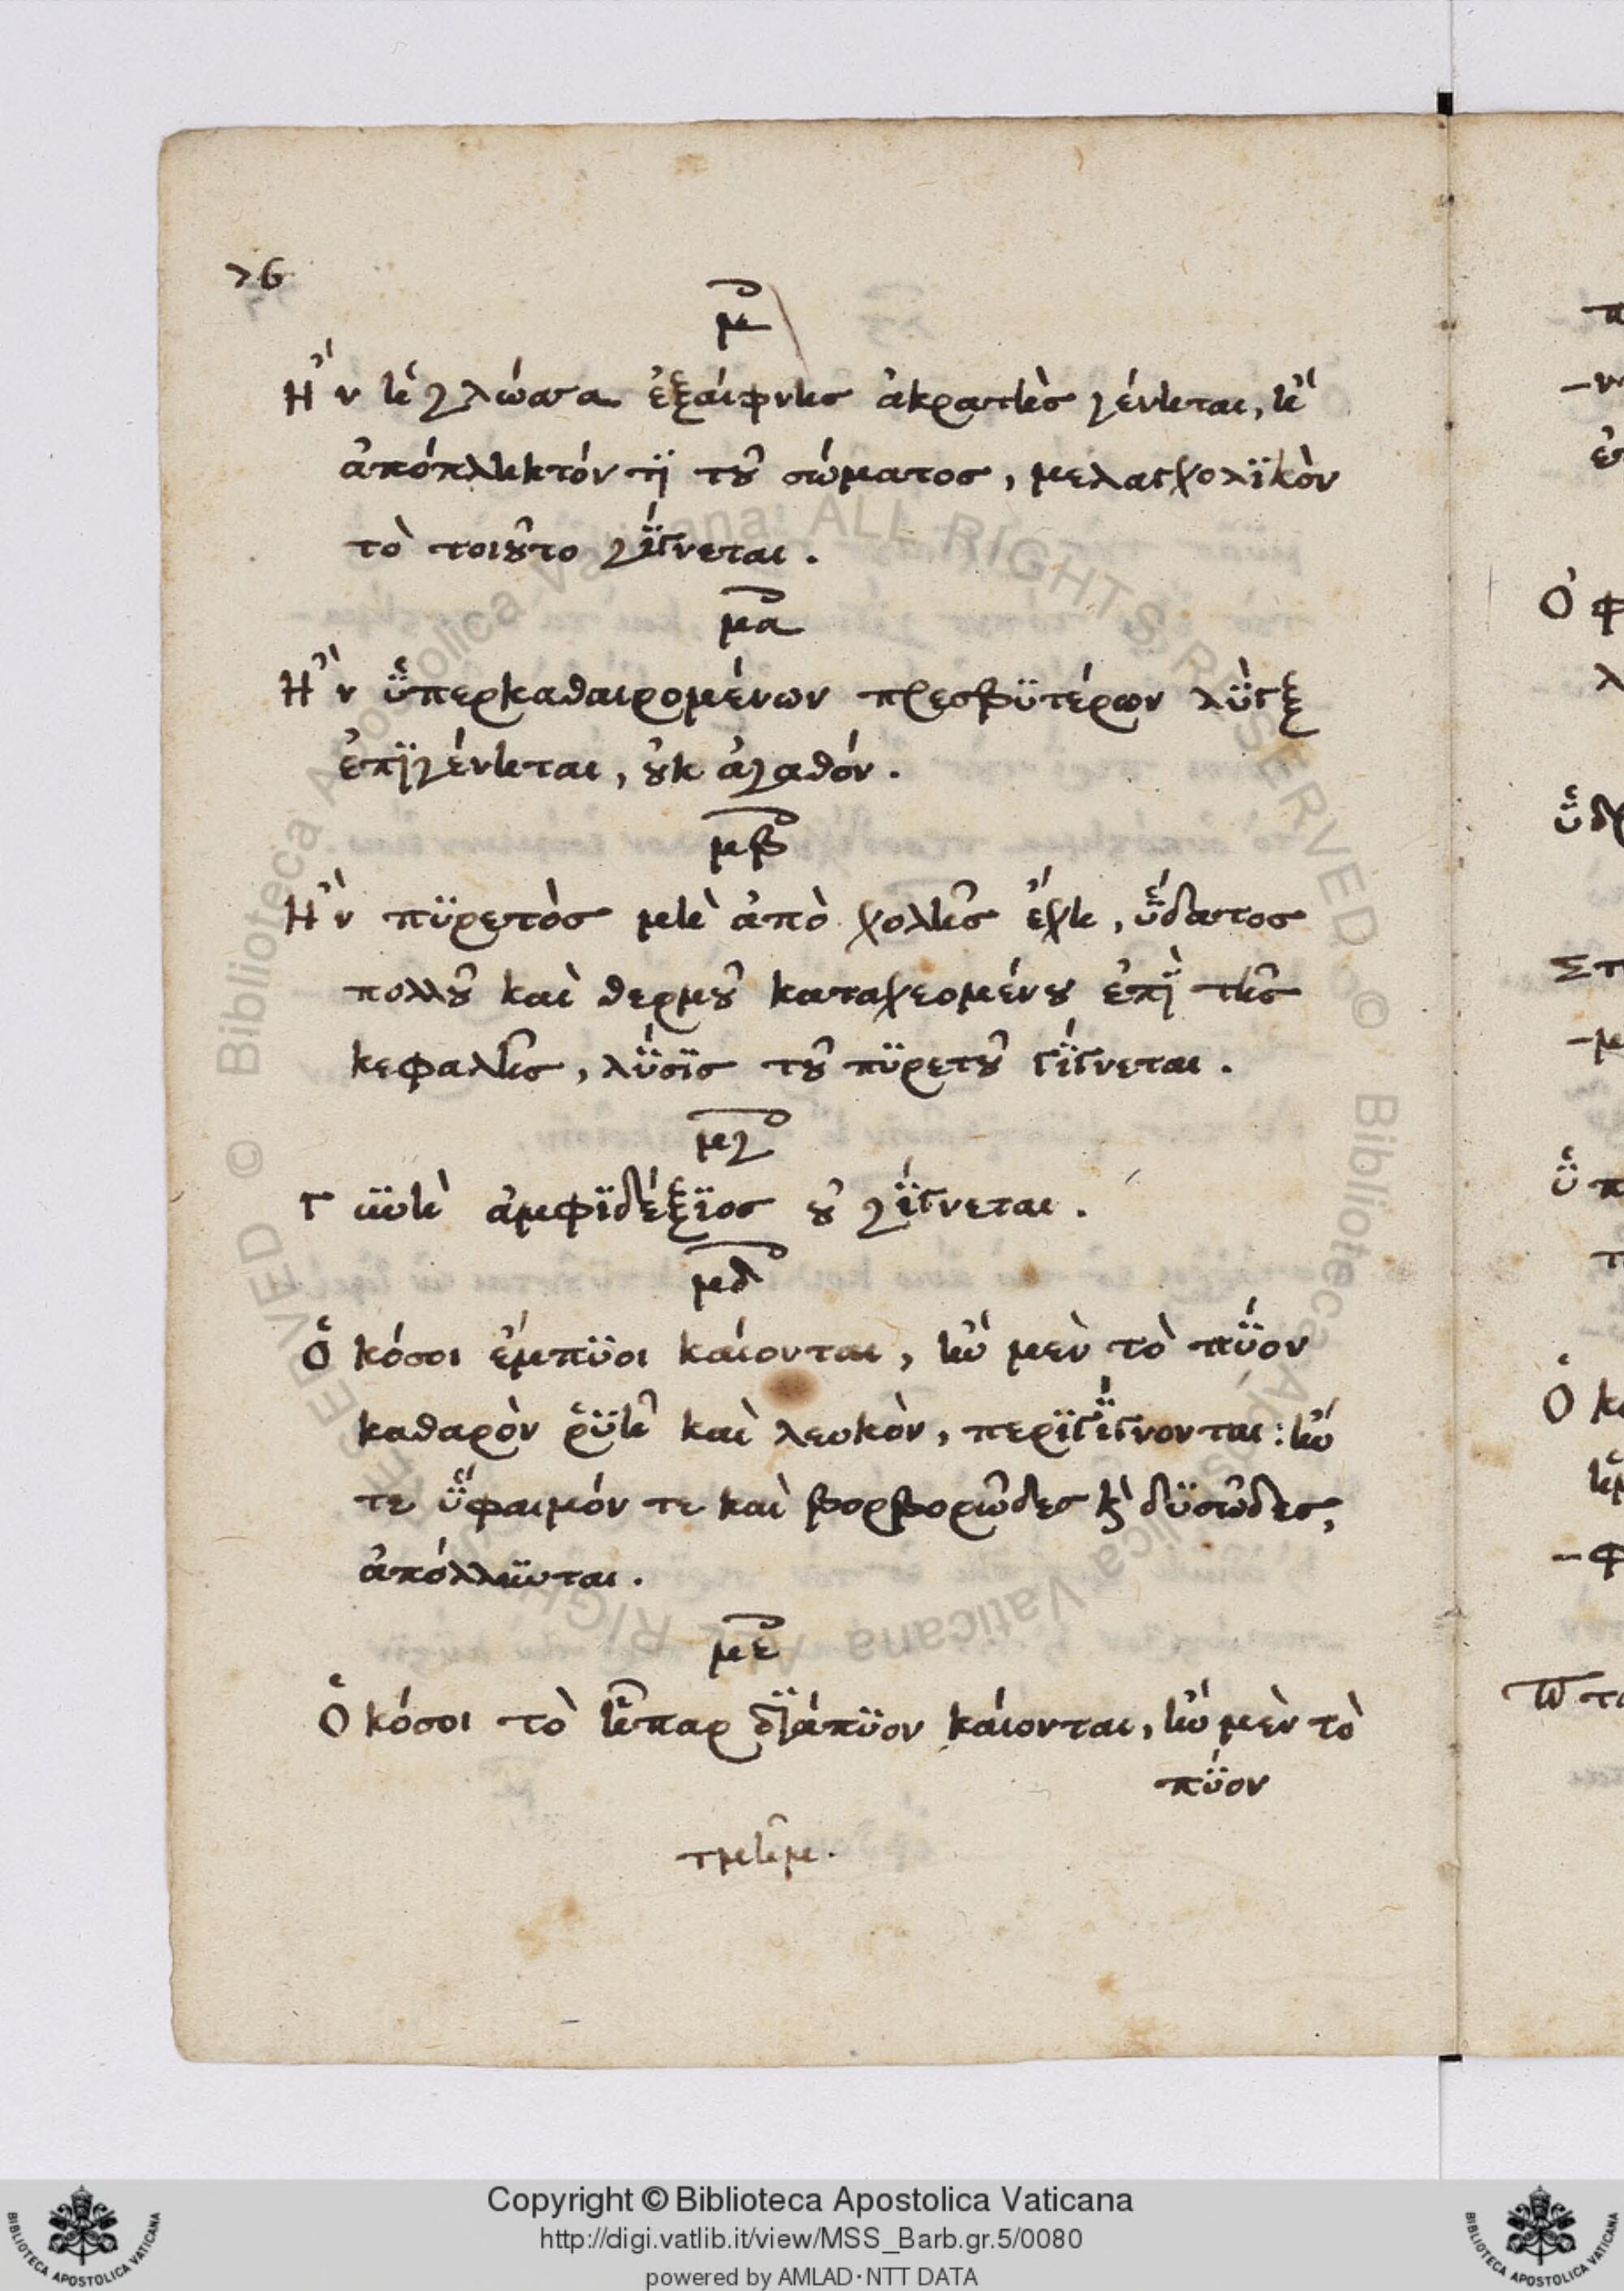 76
μ
Ἢν ἡ γλώσσα ἐξαίφνης ἀκρατὴς γένηται, ἢ
ἀπόπληκτόν τϊ τοῦ σώματος, μελαγχολϊκὸν
τὸ τοιοῦτο γί̈γνεται.
μα
Ἢν ὑ̈περκαθαιρομένων πρεσβϋτέρων λὺ̈γξ
ἐπϊγένηται, οὐκ ἀγαθόν.
μβ
Ἢν πϋρετὸς μὴ ἀπὸ χολῆς ἔχη, ὕ̈δατος
πολλοῦ καὶ θερμοῦ καταχεομένου ἐπῒ τῆς
κεφαλῆς, λΰσϊς τοῦ πϋρετοῦ γΐγνεται.
μγ
Γυνὴ ἀμφϊδέξϊος οὐ γΐγνεται.
μδ
Ὁκόσοι ἔμπϋοι καίονται, ἢν μὲν τὸ πΰον
καθαρὸν ῥϋῆ καὶ λευκὸν, περϊγΐγνονται: ἤν
τε ὕ̈φαιμόν τε καὶ βορβορῶδες κὶ δϋσῶδες,
ἀπόλλϋνται.
με
Ὁκόσοι τὸ ἧπαρ δϊάπϋον καίονται, ἢν μὲν τὸ
πΰον
τμῆμ.
-μ
Copyright © Biblioteca Apostolica Vaticana
http://digi.vatlib.it/view/MSS_Barb.gr.5/0080
powered by AMLAD·NTT DATA
BIBLIOTECA APOSTOLICA VATICANA
BIBLIOTECA APOSTOLICA VATICANA